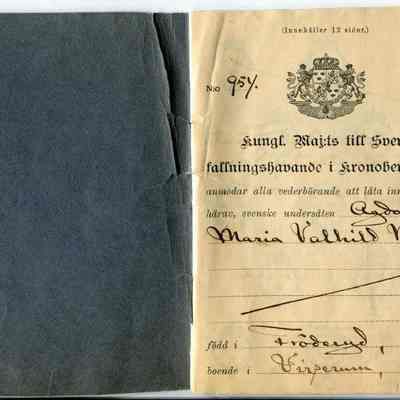 (Innehåller 12 sidor.)
N:o 954.
Kungl. Maj:ts till Sver
fallningshavande i Kronober
anmodar alla vederbörande att låta inn
härav, svenske undersåten Agda
Maria Valhild
född i Fröderyd,
boende i Virserum,